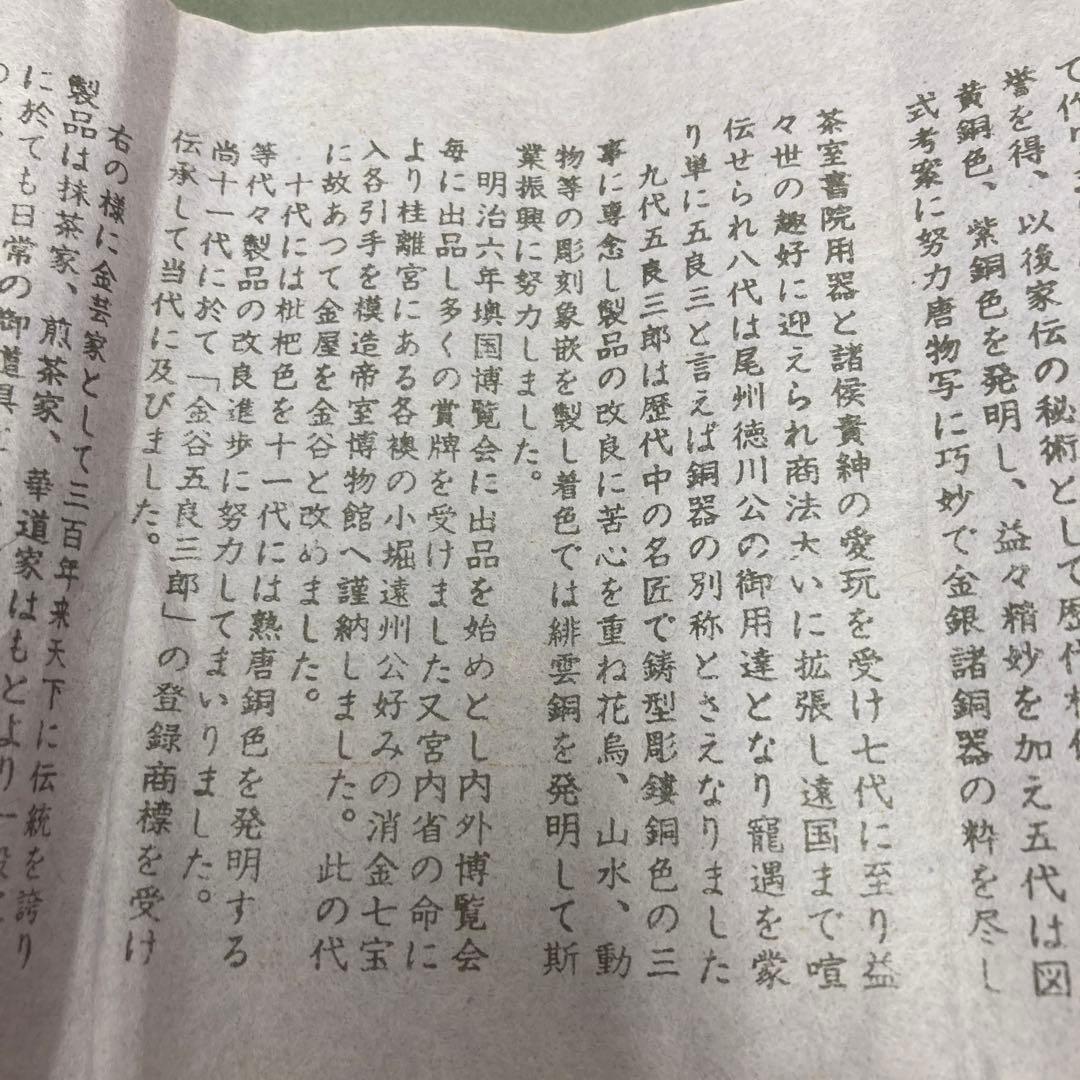 誉を得、以後家伝の秘術として歴代相
黄銅色、紫銅色を発明し、益々精妙を加え五代は図
式考案に努力唐物写に巧妙で金銀諸銅器の粋を尽し
茶室書院用器と諸侯貴紳の愛玩を受け七代に至り益
々世の趣好に迎えられ商法大いに拡張し遠国まで喧
伝せられ八代は尾州徳川公の御用達となり寵遇を蒙
り単に五良三と言えば銅器の別称とさえなりました
九代五良三郎は歴代中の名匠で鋳型彫鏤銅色の三
事に専念し製品の改良に苦心を重ね花鳥、山水、動
物等の彫刻象嵌を製し着色では緋雲銅を発明して斯
業振興に努力しました。
明治六年墺国博覧会に出品を始めとし内外博覧会
毎に出品し多くの賞牌を受けました又宮内省の命に
より桂離宮にある各襖の小堀遠州公好みの消金七宝
入各引手を模造帝室博物館へ謹納しました。此の代
に故あつて金屋を金谷と改めました。
十代には枇杷色を十一代には熟唐銅色を発明する
等代々製品の改良進歩に努力してまいりました。
尚十一代に於て「金谷五良三郎」の登録商標を受け
伝承して当代に及びました。
右の様に金芸家として三百年来天下に伝統を誇り
製品は抹茶家、煎茶家、華道家はもとより一般
に於ても日常の御道具